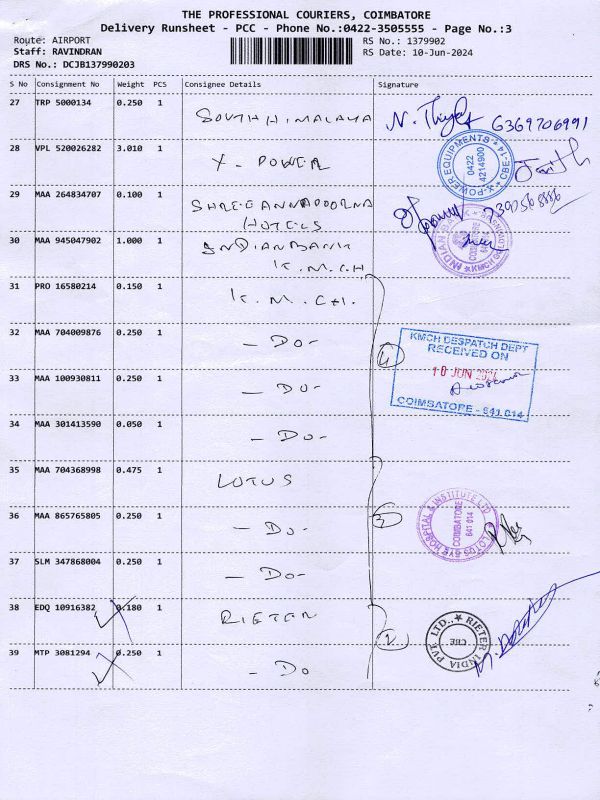 THE PROFESSIONAL COURIERS, COIMBATORE
Delivery Runsheet - PCC - Phone No.:0422-3505555 - Page No.:3
Route: AIRPORT
RS No.: 1379902
Staff: RAVINDRAN
RS Date: 10-Jun-2024
DRS No.: DCJB137990203
S No Consignment No Weight PCS Consignee Details Signature
27 TRP 5000134 0.250 1 SOUTH HIMALAYA 6369706991
28 VPL 520026282 3.010 1 X-POWER
X-POWER EQUIPMENTS CBE-14
0422
4214900
29 MAA 264834707 0.100 1 SHREE ANNAPOORNA
HOTELS
30 MAA 945047902 1.000 1 INDIAN BANK
K.M.C.H
INDIAN BANK
COIMBATORE
KMCH
31 PRO 16580214 0.150 1 K.M.CH.
32 MAA 704009876 0.250 1 - DO -
4
KMCH DESPATCH DEPT
RECEIVED ON
10 JUN 2024
COIMBATORE - 641 014
33 MAA 100930811 0.250 1 - DO -
34 MAA 301413590 0.050 1 - DO -
35 MAA 704368998 0.475 1 LOTUS
36 MAA 865765805 0.250 1 - DO -
3
LOTUS EYE HOSPITAL & INSTITUTE LTD
COIMBATORE
641 014
37 SLM 347868004 0.250 1 - DO -
38 EDQ 10916382 0.180 1 RIETER
2
RIETER INDIA PVT. LTD.,
CBE
39 MTP 3081294 0.250 1 - DO